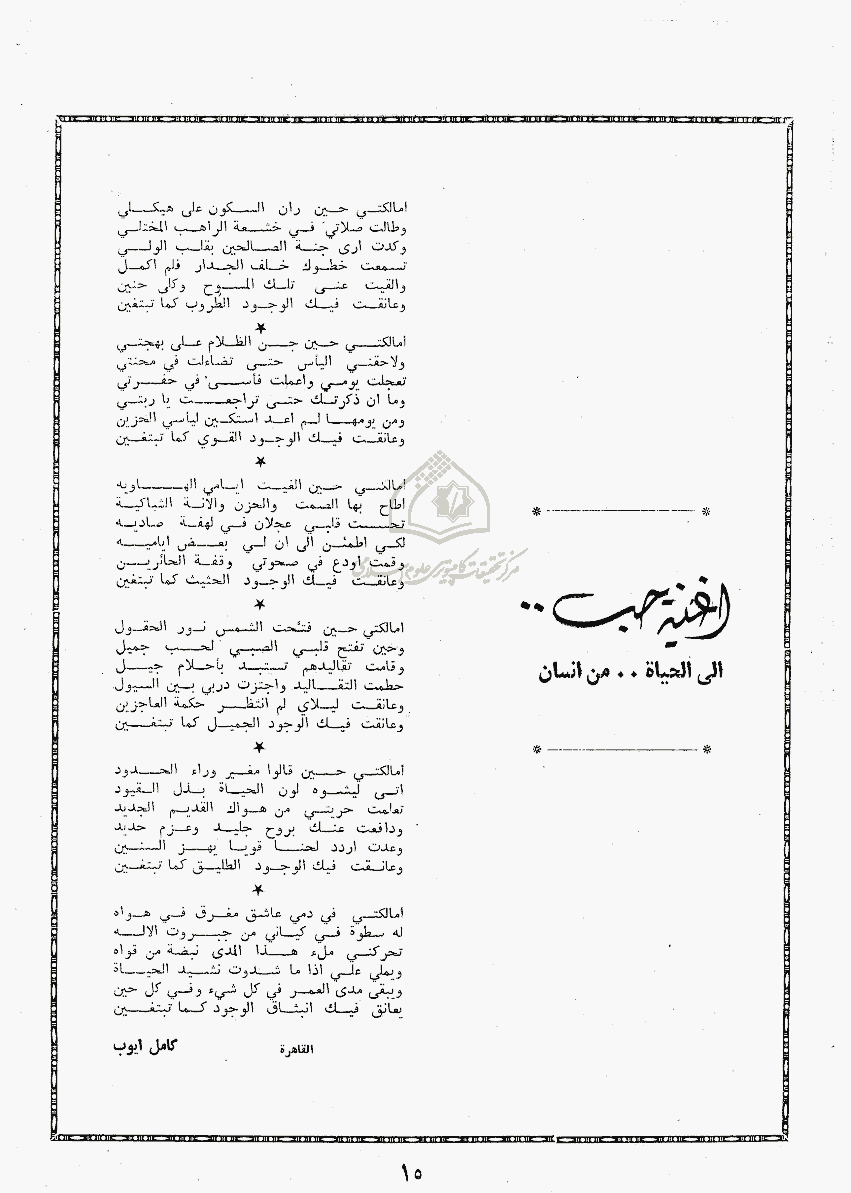 اغنية حب ..
الى الحياة .. من انسان
امالكتي حين ران السكون على هيكلي
وطالت صلاتي في خشعة الراهب المختلي
وكدت ارى جنة الصالحين بقلب الولي
تسمعت خطوك خلف الجدار فلم اكمل
والقيت عني تلك المسوح وكلى حنين
وعانقت فيك الوجود الطروب كما تبتغين
★
امالكتي حين جن الظلام على بهجتي
ولاحقني اليأس حتى تضاءلت في محنتي
تعجلت يومي واعملت فأسى في حفرتي
وما ان ذكرتك حتى تراجعت يا ربتي
ومن يومها لم اعد استكين ليأسي الحزين
وعانقت فيك الوجود القوي كما تبتغين
★
امالكتي حين الفيت ايامي الهاويه
اطاح بها الصمت والحزن والانة الشاكية
تحسست قلبي عجلان في لهفة صاديه
لكي اطمئن الى ان لي بعض اياميه
وقمت اودع في صحوتي وقفة الحائرين
وعانقت فيك الوجود الحثيث كما تبتغين
★
امالكتي حين فتحت الشمس نور الحقول
وحين تفتح قلبي الصبي لحب جميل
وقامت تقاليدهم تستبد باحلام جيل
حطمت التقاليد واجتزت دربي بين السيول
وعانقت ليلاي لم انتظر حكمة العاجزين
وعانقت فيك الوجود الجميل كما تبتغين
★
امالكتي حين قالوا مغير وراء الحدود
اتى ليشوه لون الحياة بذل القيود
تعلمت حريتي من هواك القديم الجديد
ودافعت عنك بروح جليد وعزم حديد
وعدت اردد لحنا قويا يهز السنين
وعانقت فيك الوجود الطليق كما تبتغين
★
امالكتي في دمي عاشق مغرق في هواه
له سطوة في كياني من جبروت الاله
تحركني ملء هذا المدى نبضة من قواه
ويملي علي اذا ما شدوت نشيد الحياة
ويبقى مدى العمر في كل شيء وفي كل حين
يعانق فيك انبثاق الوجود كما تبتغين
القاهرة كامل ايوب
مركز تحقيقات كامپيوترى علوم اسلامى
١٥